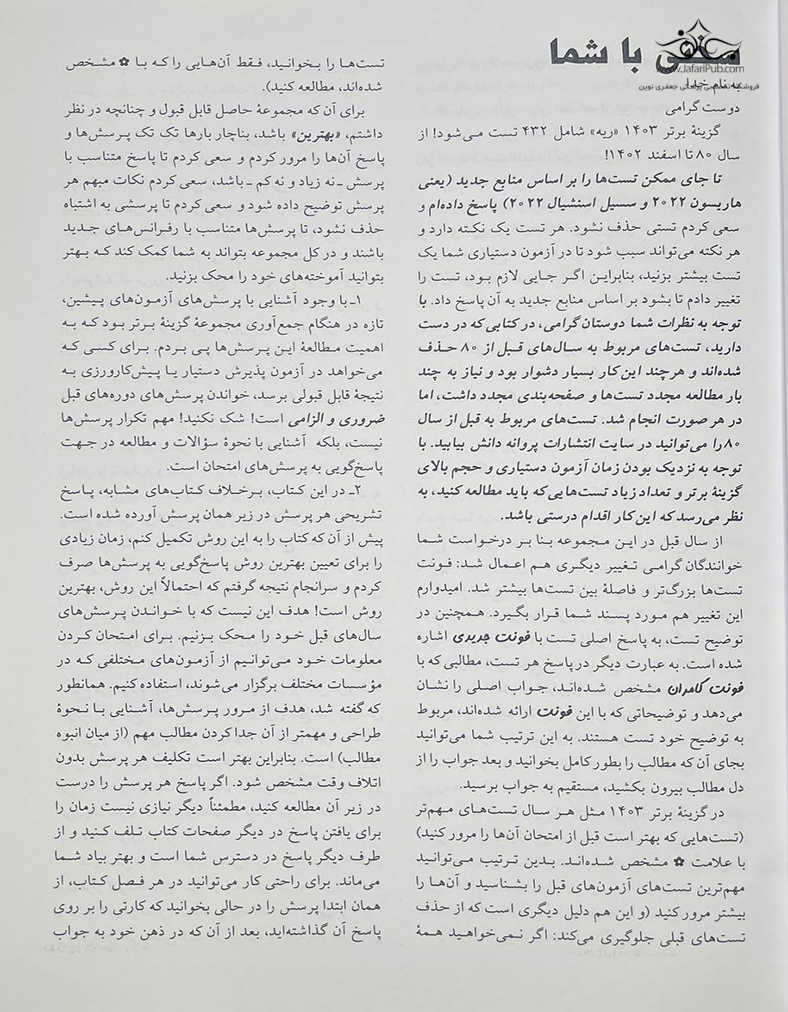 سخنی با شما
www.JafariPub.com
فروشگاه تخصصی پزشکی جعفری نوین
به نام خدا
دوست گرامی
گزینهٔ برتر ۱۴۰۳ «ریه» شامل ۴۳۲ تست می‌شود! از
سال ۸۰ تا اسفند ۱۴۰۲!
تا جای ممکن تست‌ها را بر اساس منابع جدید (یعنی
هاریسون ۲۰۲۲ و سسیل اسنشیال ۲۰۲۲) پاسخ داده‌ام و
سعی کردم تستی حذف نشود. هر تست یک نکته دارد و
هر نکته می‌تواند سبب شود تا در آزمون دستیاری شما یک
تست بیشتر بزنید، بنابراین اگر جایی لازم بود، تست را
تغییر دادم تا بشود بر اساس منابع جدید به آن پاسخ داد. با
توجه به نظرات شما دوستان گرامی، در کتابی که در دست
دارید، تست‌های مربوط به سال‌های قبل از ۸۰ حذف
شده‌اند و هرچند این کار بسیار دشوار بود و نیاز به چند
بار مطالعه مجدد تست‌ها و صفحه‌بندی مجدد داشت، اما
در هر صورت انجام شد. تست‌های مربوط به قبل از سال
۸۰ را می‌توانید در سایت انتشارات پروانه دانش بیابید. با
توجه به نزدیک بودن زمان آزمون دستیاری و حجم بالای
گزینهٔ برتر و تعداد زیاد تست‌هایی که باید مطالعه کنید، به
نظر می‌رسد که این کار اقدام درستی باشد.
از سال قبل در این مجموعه بنا بر درخواست شما
خوانندگان گرامی تغییر دیگری هم اعمال شد: فونت
تست‌ها بزرگ‌تر و فاصلهٔ بین تست‌ها بیشتر شد. امیدوارم
این تغییر هم مورد پسند شما قرار بگیرد. همچنین در
توضیح تست، به پاسخ اصلی تست با فونت جدیدی اشاره
شده است. به عبارت دیگر در پاسخ هر تست، مطالبی که با
فونت کامران مشخص شده‌اند، جواب اصلی را نشان
می‌دهد و توضیحاتی که با این فونت ارائه شده‌اند، مربوط
به توضیح خود تست هستند. به این ترتیب شما می‌توانید
بجای آن که مطالب را بطور کامل بخوانید و بعد جواب را از
دل مطالب بیرون بکشید، مستقیم به جواب برسید.
در گزینهٔ برتر ۱۴۰۳ مثل هر سال تست‌های مهم‌تر
(تست‌هایی که بهتر است قبل از امتحان آن‌ها را مرور کنید)
با علامت ✿ مشخص شده‌اند. بدین ترتیب می‌توانید
مهم‌ترین تست‌های آزمون‌های قبل را بشناسید و آن‌ها را
بیشتر مرور کنید (و این هم دلیل دیگری است که از حذف
تست‌های قبلی جلوگیری می‌کند: اگر نمی‌خواهید همهٔ
تست‌ها را بخوانید، فقط آن‌هایی را که با ✿ مشخص
شده‌اند، مطالعه کنید).
برای آن که مجموعهٔ حاصل قابل قبول و چنانچه در نظر
داشتم، «بهترین» باشد، بناچار بارها تک تک پرسش‌ها و
پاسخ آن‌ها را مرور کردم و سعی کردم تا پاسخ متناسب با
پرسش ـ نه زیاد و نه کم ـ باشد، سعی کردم نکات مبهم هر
پرسش توضیح داده شود و سعی کردم تا پرسشی به اشتباه
حذف نشود، تا پرسش‌ها متناسب با رفرانس‌های جدید
باشند و در کل مجموعه بتواند به شما کمک کند که بهتر
بتوانید آموخته‌های خود را محک بزنید.
۱ـ با وجود آشنایی با پرسش‌های آزمون‌های پیشین،
تازه در هنگام جمع‌آوری مجموعهٔ گزینهٔ برتر بود که به
اهمیت مطالعهٔ این پرسش‌ها پی بردم. برای کسی که
می‌خواهد در آزمون پذیرش دستیار یا پیش‌کارورزی به
نتیجهٔ قابل قبولی برسد، خواندن پرسش‌های دوره‌های قبل
ضروری و الزامی است! شک نکنید! مهم تکرار پرسش‌ها
نیست، بلکه آشنایی با نحوهٔ سؤالات و مطالعه در جهت
پاسخ‌گویی به پرسش‌های امتحان است.
۲ـ در این کتاب، برخلاف کتاب‌های مشابه، پاسخ
تشریحی هر پرسش در زیر همان پرسش آورده شده است.
پیش از آن که کتاب را به این روش تکمیل کنم، زمان زیادی
را برای تعیین بهترین روش پاسخ‌گویی به پرسش‌ها صرف
کردم و سرانجام نتیجه گرفتم که احتمالاً این روش، بهترین
روش است! هدف این نیست که با خواندن پرسش‌های
سال‌های قبل خود را محک بزنیم. برای امتحان کردن
معلومات خود می‌توانیم از آزمون‌های مختلفی که در
مؤسسات مختلف برگزار می‌شوند، استفاده کنیم. همانطور
که گفته شد، هدف از مرور پرسش‌ها، آشنایی با نحوهٔ
طراحی و مهمتر از آن جدا کردن مطالب مهم (از میان انبوه
مطالب) است. بنابراین بهتر است تکلیف هر پرسش بدون
اتلاف وقت مشخص شود. اگر پاسخ هر پرسش را درست
در زیر آن مطالعه کنید، مطمئناً دیگر نیازی نیست زمان را
برای یافتن پاسخ در دیگر صفحات کتاب تلف کنید و از
طرف دیگر پاسخ در دسترس شما است و بهتر بیاد شما
می‌ماند. برای راحتی کار می‌توانید در هر فصل کتاب، از
همان ابتدا پرسش را در حالی بخوانید که کارتی را بر روی
پاسخ آن گذاشته‌اید، بعد از آن که در ذهن خود به جواب